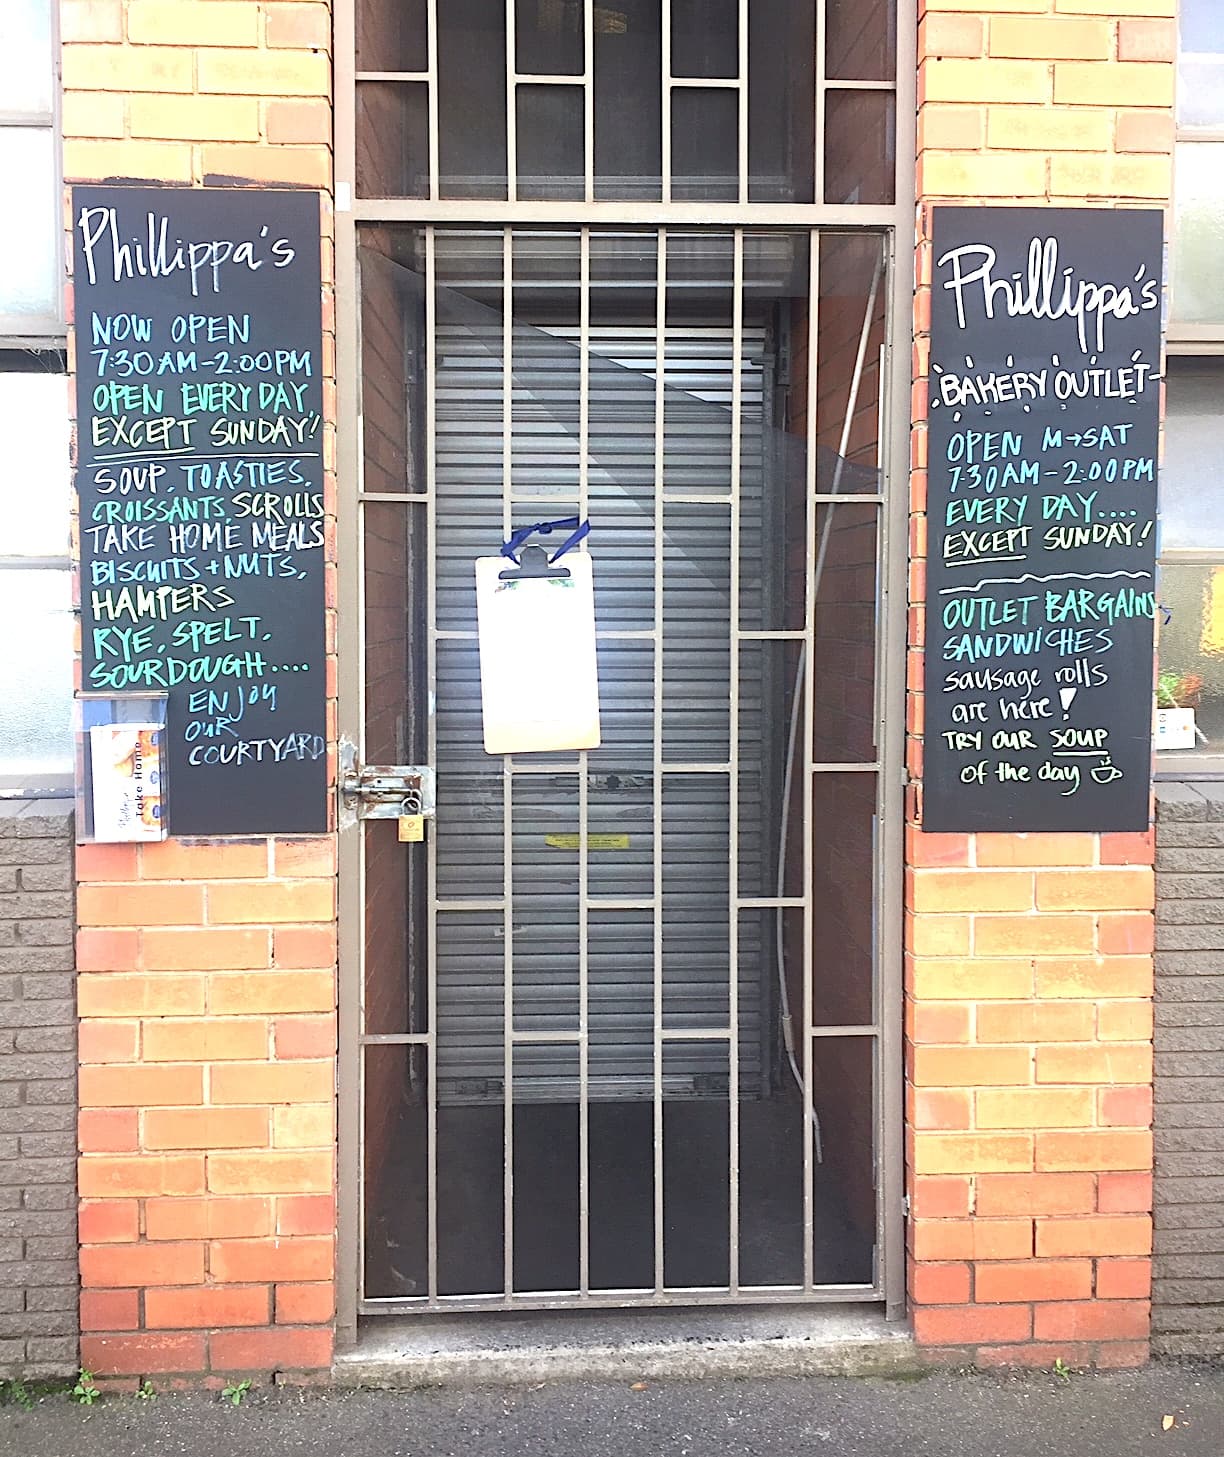 Phillippa's
NOW OPEN
7:30AM-2:00PM
OPEN EVERY DAY
EXCEPT SUNDAY!
SOUP, TOASTIES,
CROISSANTS, SCROLLS
TAKE HOME MEALS
BISCUITS + NUTS,
HAMPERS
RYE, SPELT,
SOURDOUGH....
ENJOY
OUR
COURTYARD
Take Home
Phillippa's
BAKERY OUTLET
OPEN M→SAT
7:30AM-2:00PM
EVERY DAY....
EXCEPT SUNDAY!
OUTLET BARGAINS
SANDWICHES
sausage rolls
are here!
TRY OUR SOUP
of the day